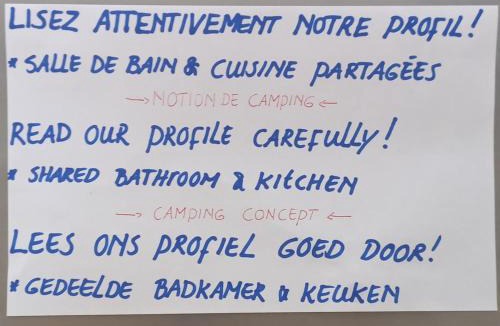 LISEZ ATTENTIVEMENT NOTRE PROFIL!
* SALLE DE BAIN & CUISINE PARTAGÉES
→ NOTION DE CAMPING ←
READ OUR PROFILE CAREFULLY!
* SHARED BATHROOM & KITCHEN
→ CAMPING CONCEPT ←
LEES ONS PROFIEL GOED DOOR!
* GEDEELDE BADKAMER & KEUKEN